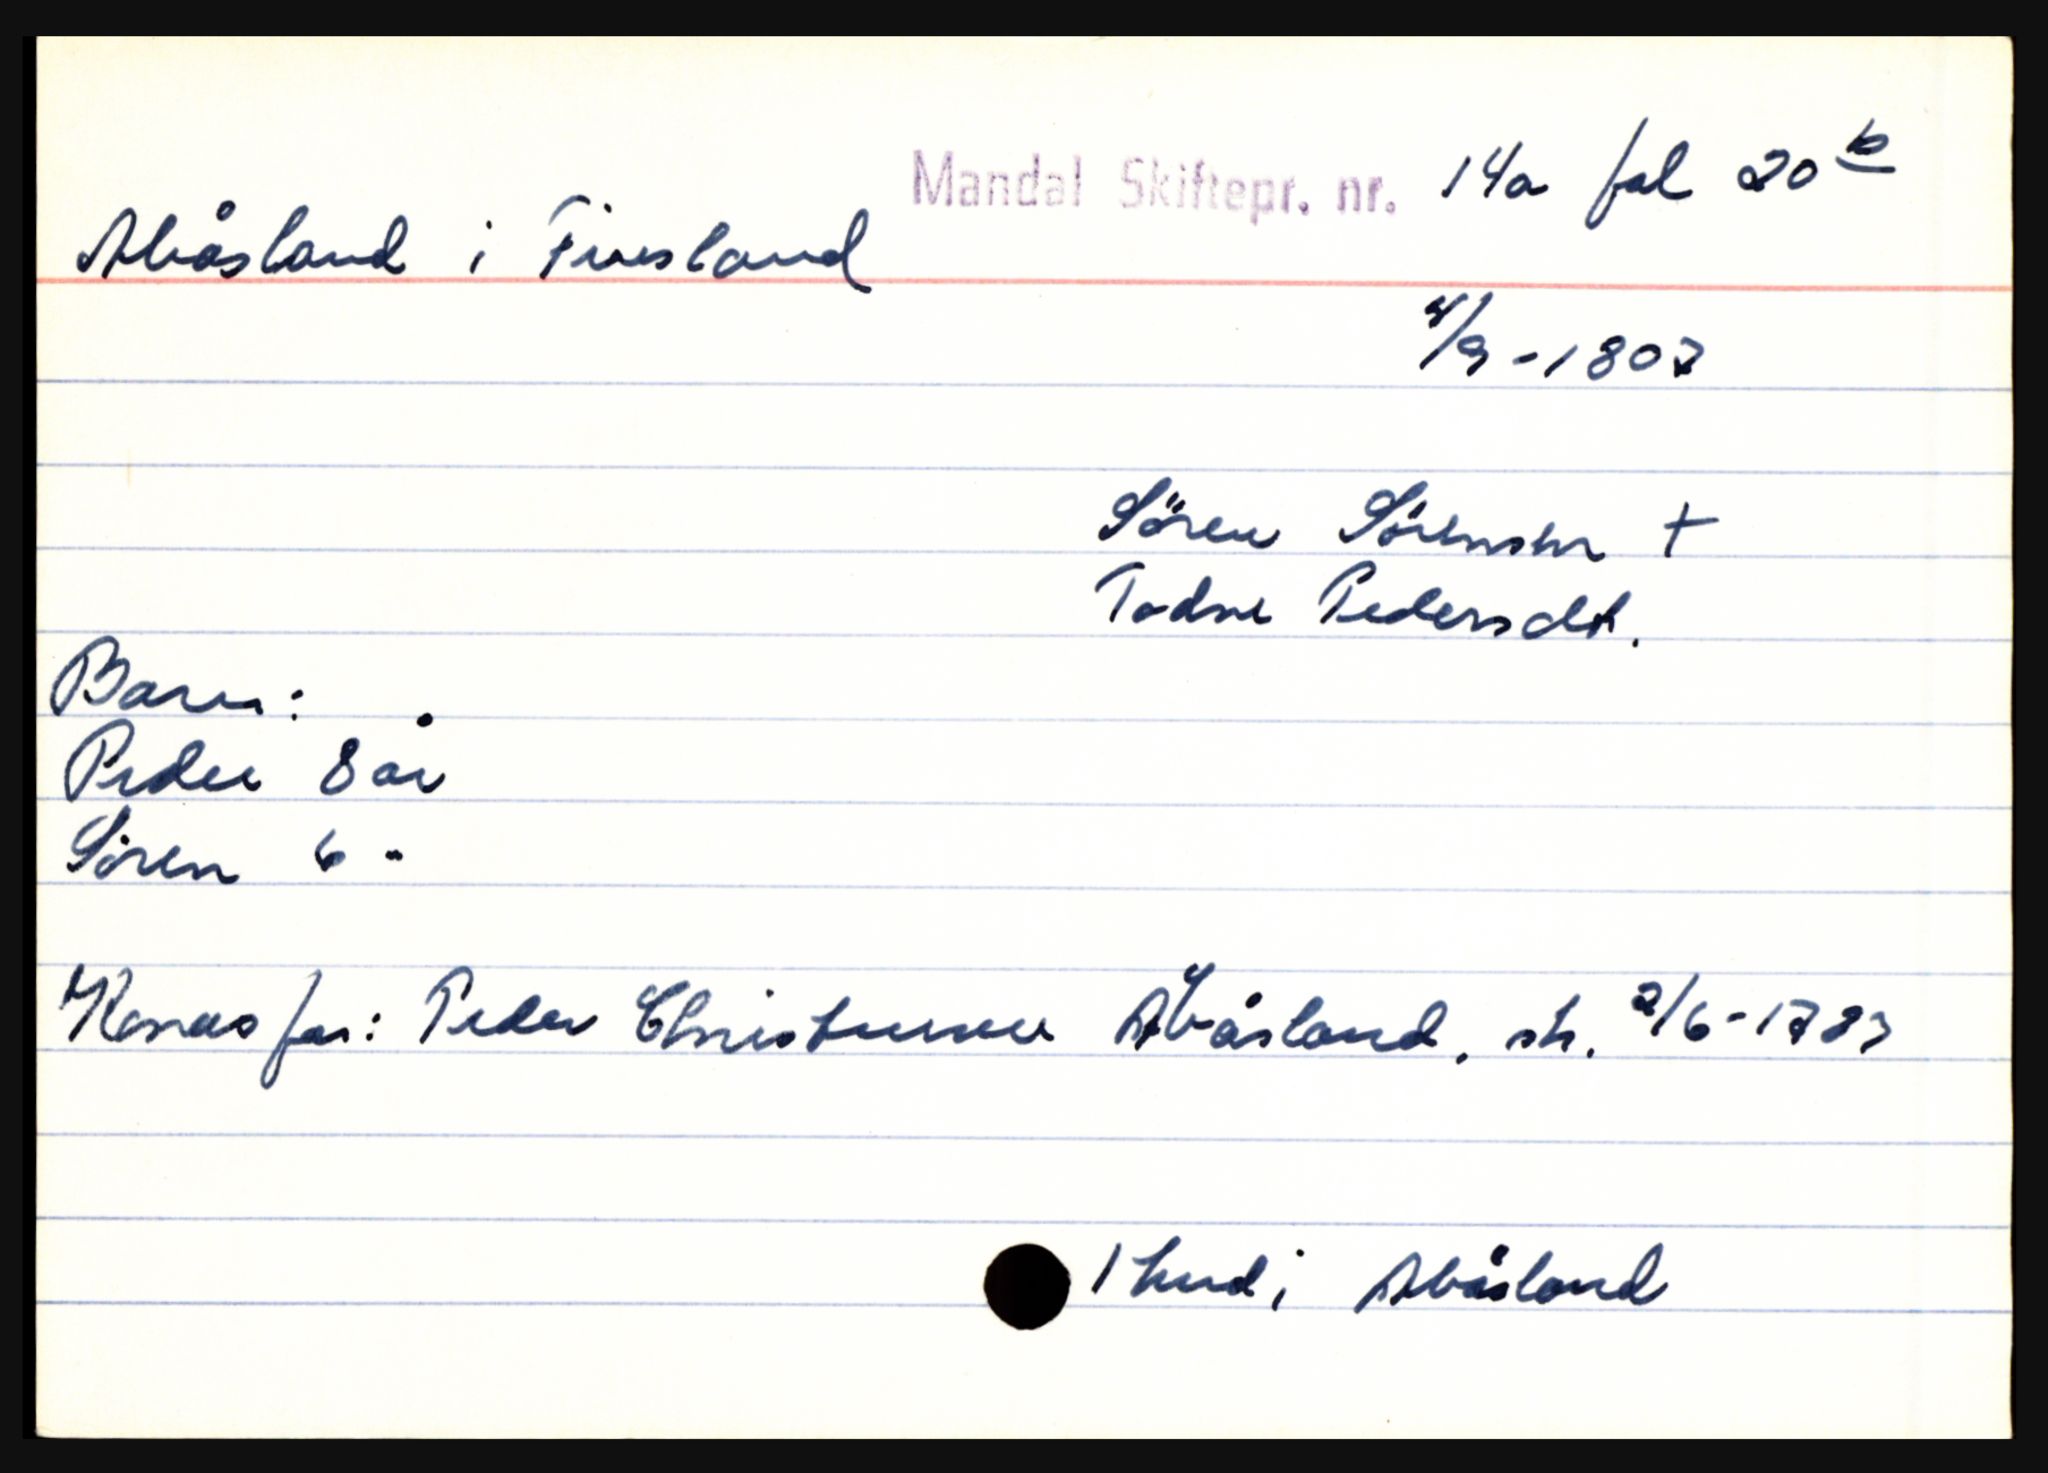 Mandal Skiftepr. nr. 14a fol 20 b
Abåsland i Finsland
4/9 - 1807
Sören Sörensen +
Todne Pedersdt.
Barn:
Peder 8 år
Sören 6 "
Konas far: Peder Christensen Abåsland, sk. 2/6 - 1787
1 hud i Abåsland